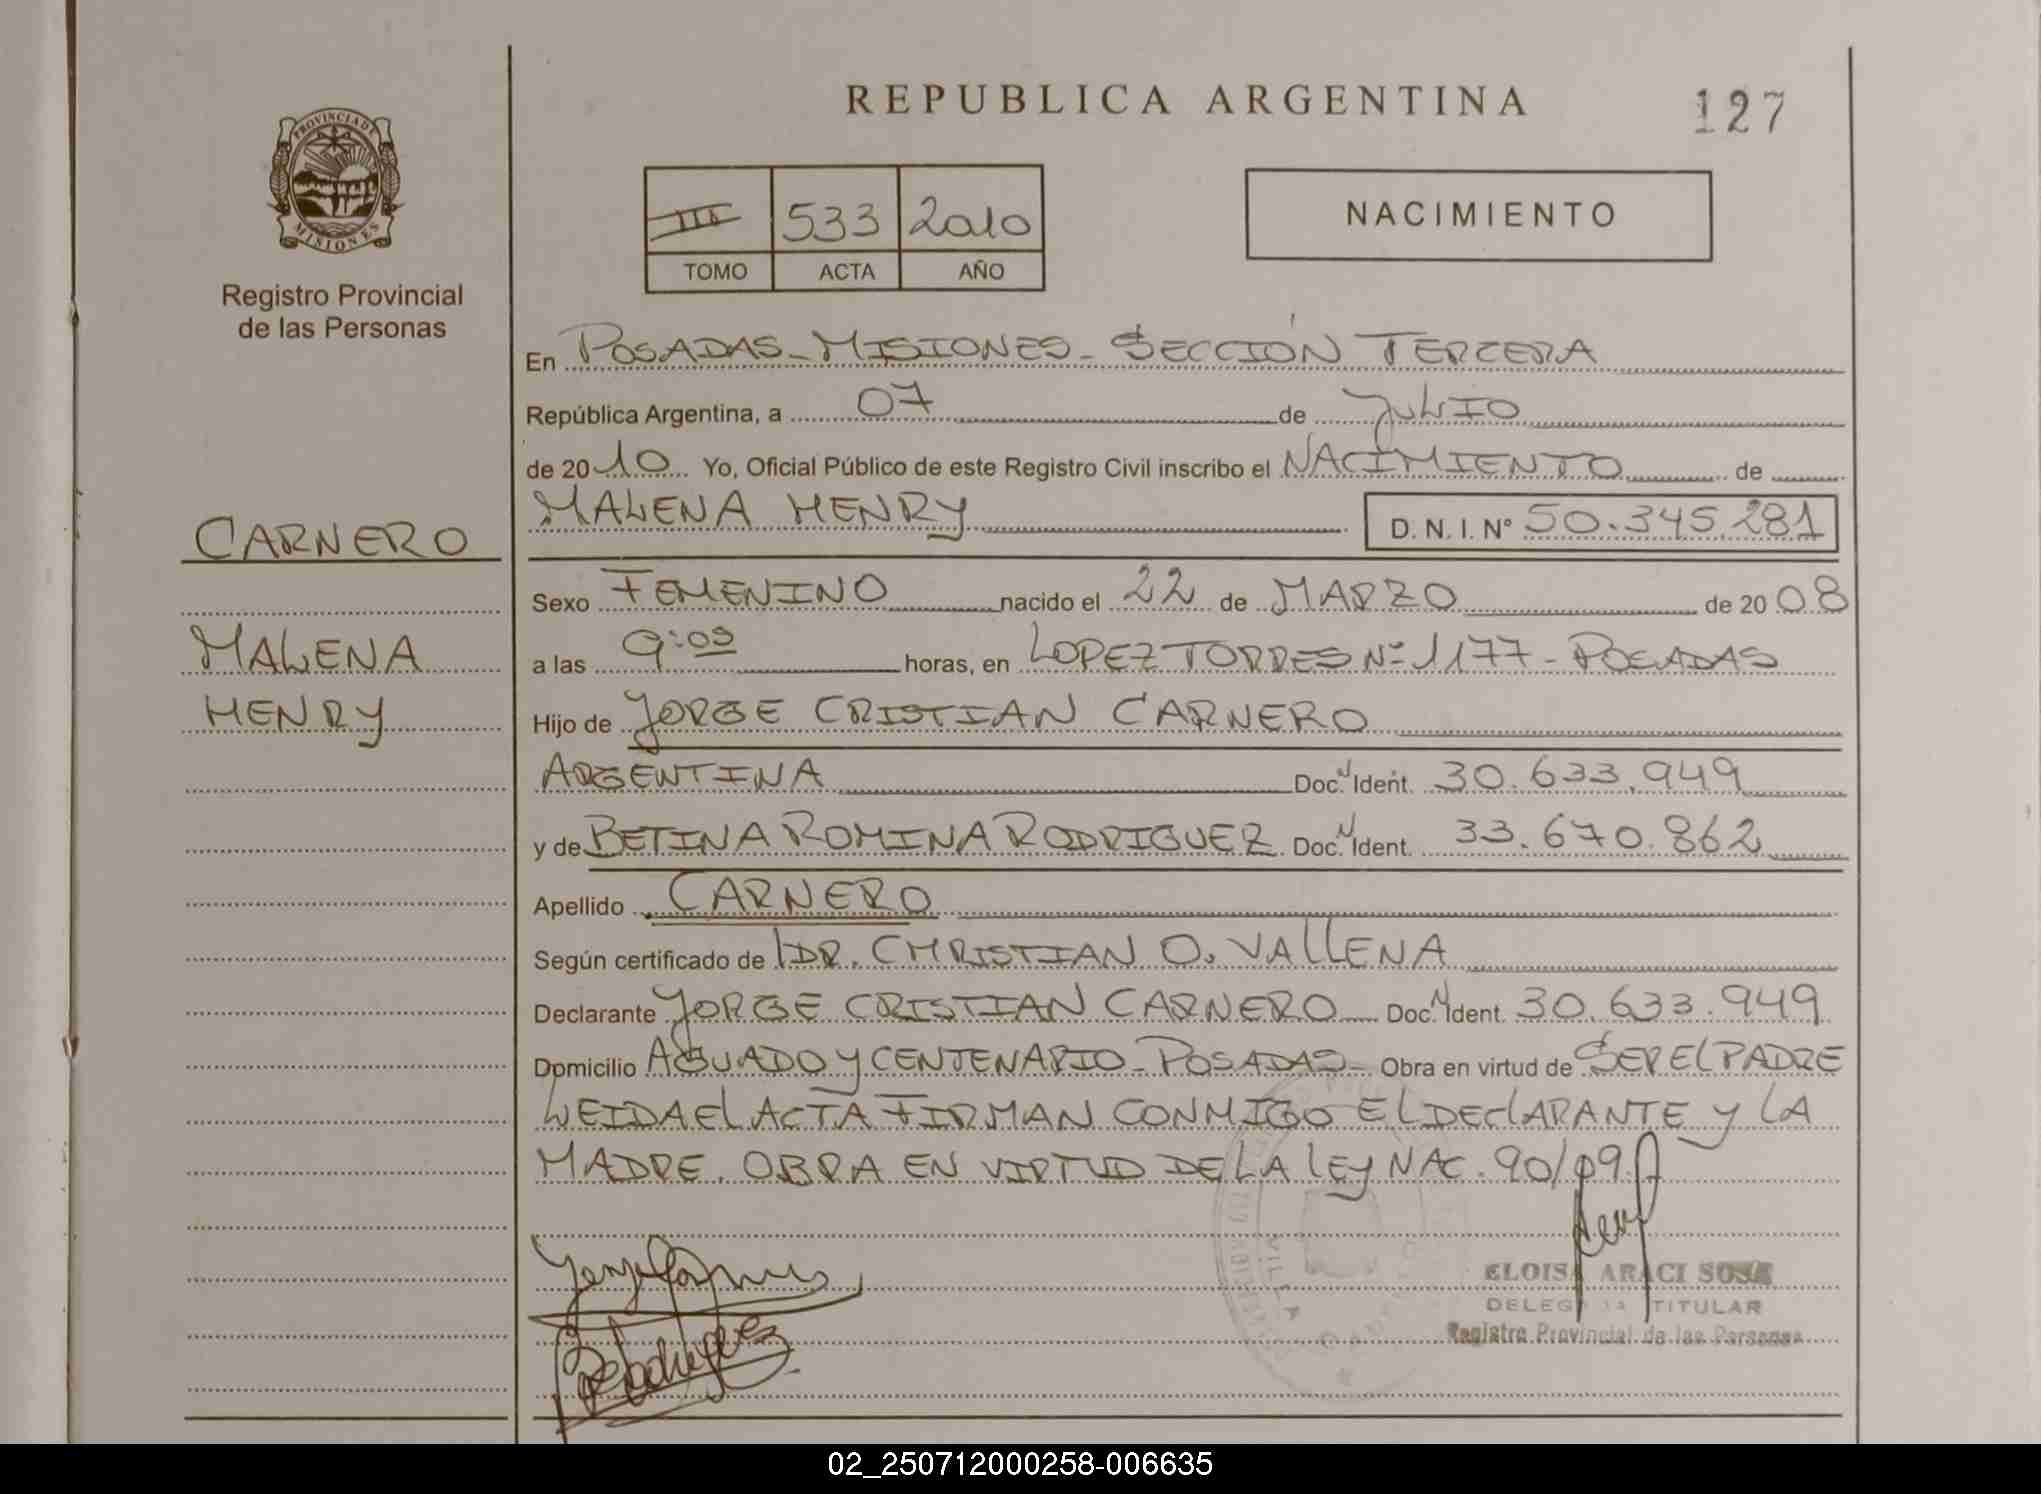 REPUBLICA ARGENTINA
127
PROVINCIA DE
MISIONES
Registro Provincial
de las Personas
III 533 2010
TOMO ACTA AÑO
NACIMIENTO
En POSADAS - MISIONES - SECCIÓN TERCERA
República Argentina, a 07 de JULIO
de 2010 Yo, Oficial Público de este Registro Civil inscribo el NACIMIENTO de
MALENA HENRY D. N. I. N° 50.345.281
CARNERO
MALENA
HENRY
Sexo FEMENINO nacido el 22 de MARZO de 2008
a las 9:05 horas, en LOPEZ TORRES Nº 1177 - POSADAS
Hijo de JORGE CRISTIAN CARNERO
ARGENTINA Doc. N Ident. 30.633.949
y de BETINA ROMINA RODRIGUEZ Doc. N Ident. 33.670.862
Apellido CARNERO
Según certificado de DR. CHRISTIAN O. VALLENA
Declarante JORGE CRISTIAN CARNERO Doc. N Ident. 30.633.949
Domicilio AGUADO Y CENTENARIO - POSADAS - Obra en virtud de SER EL PADRE
LEIDA EL ACTA FIRMAN CONMIGO EL DECLARANTE Y LA
MADRE. OBRA EN VIRTUD DE LA LEY NAC. 90/09.
ELOISA ARACI SOSA
DELEGADA TITULAR
Registro Provincial de las Personas
02_250712000258-006635